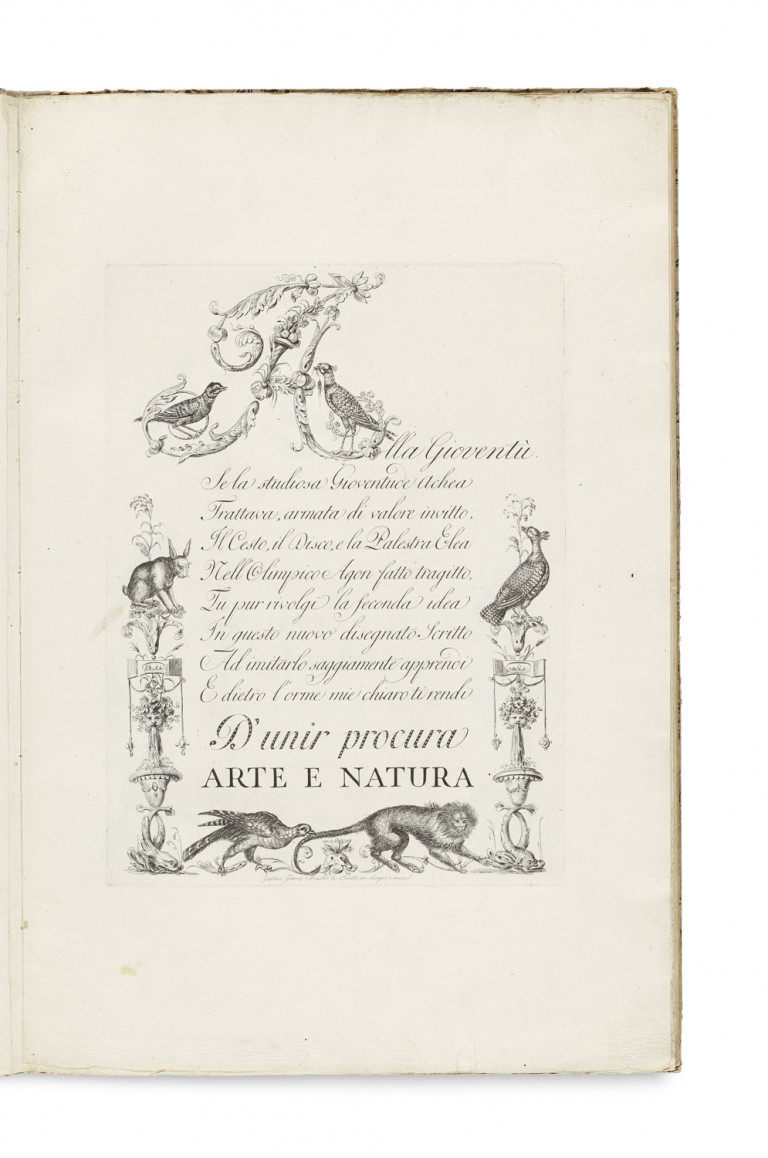 Alla Gioventù.
Se la studiosa Gioventude Achea
Trattava, armata di valore invitto,
Il Cesto, il Disco, e la Palestra Elea
Nell'Olimpico Agon fatto tragitto,
Tu pur rivolgi la feconda idea
In questo nuovo disegnato Scritto
Ad imitarlo saggiamente apprendi
E dietro l'orme mie chiaro ti rendi
D'unir procura
ARTE E NATURA